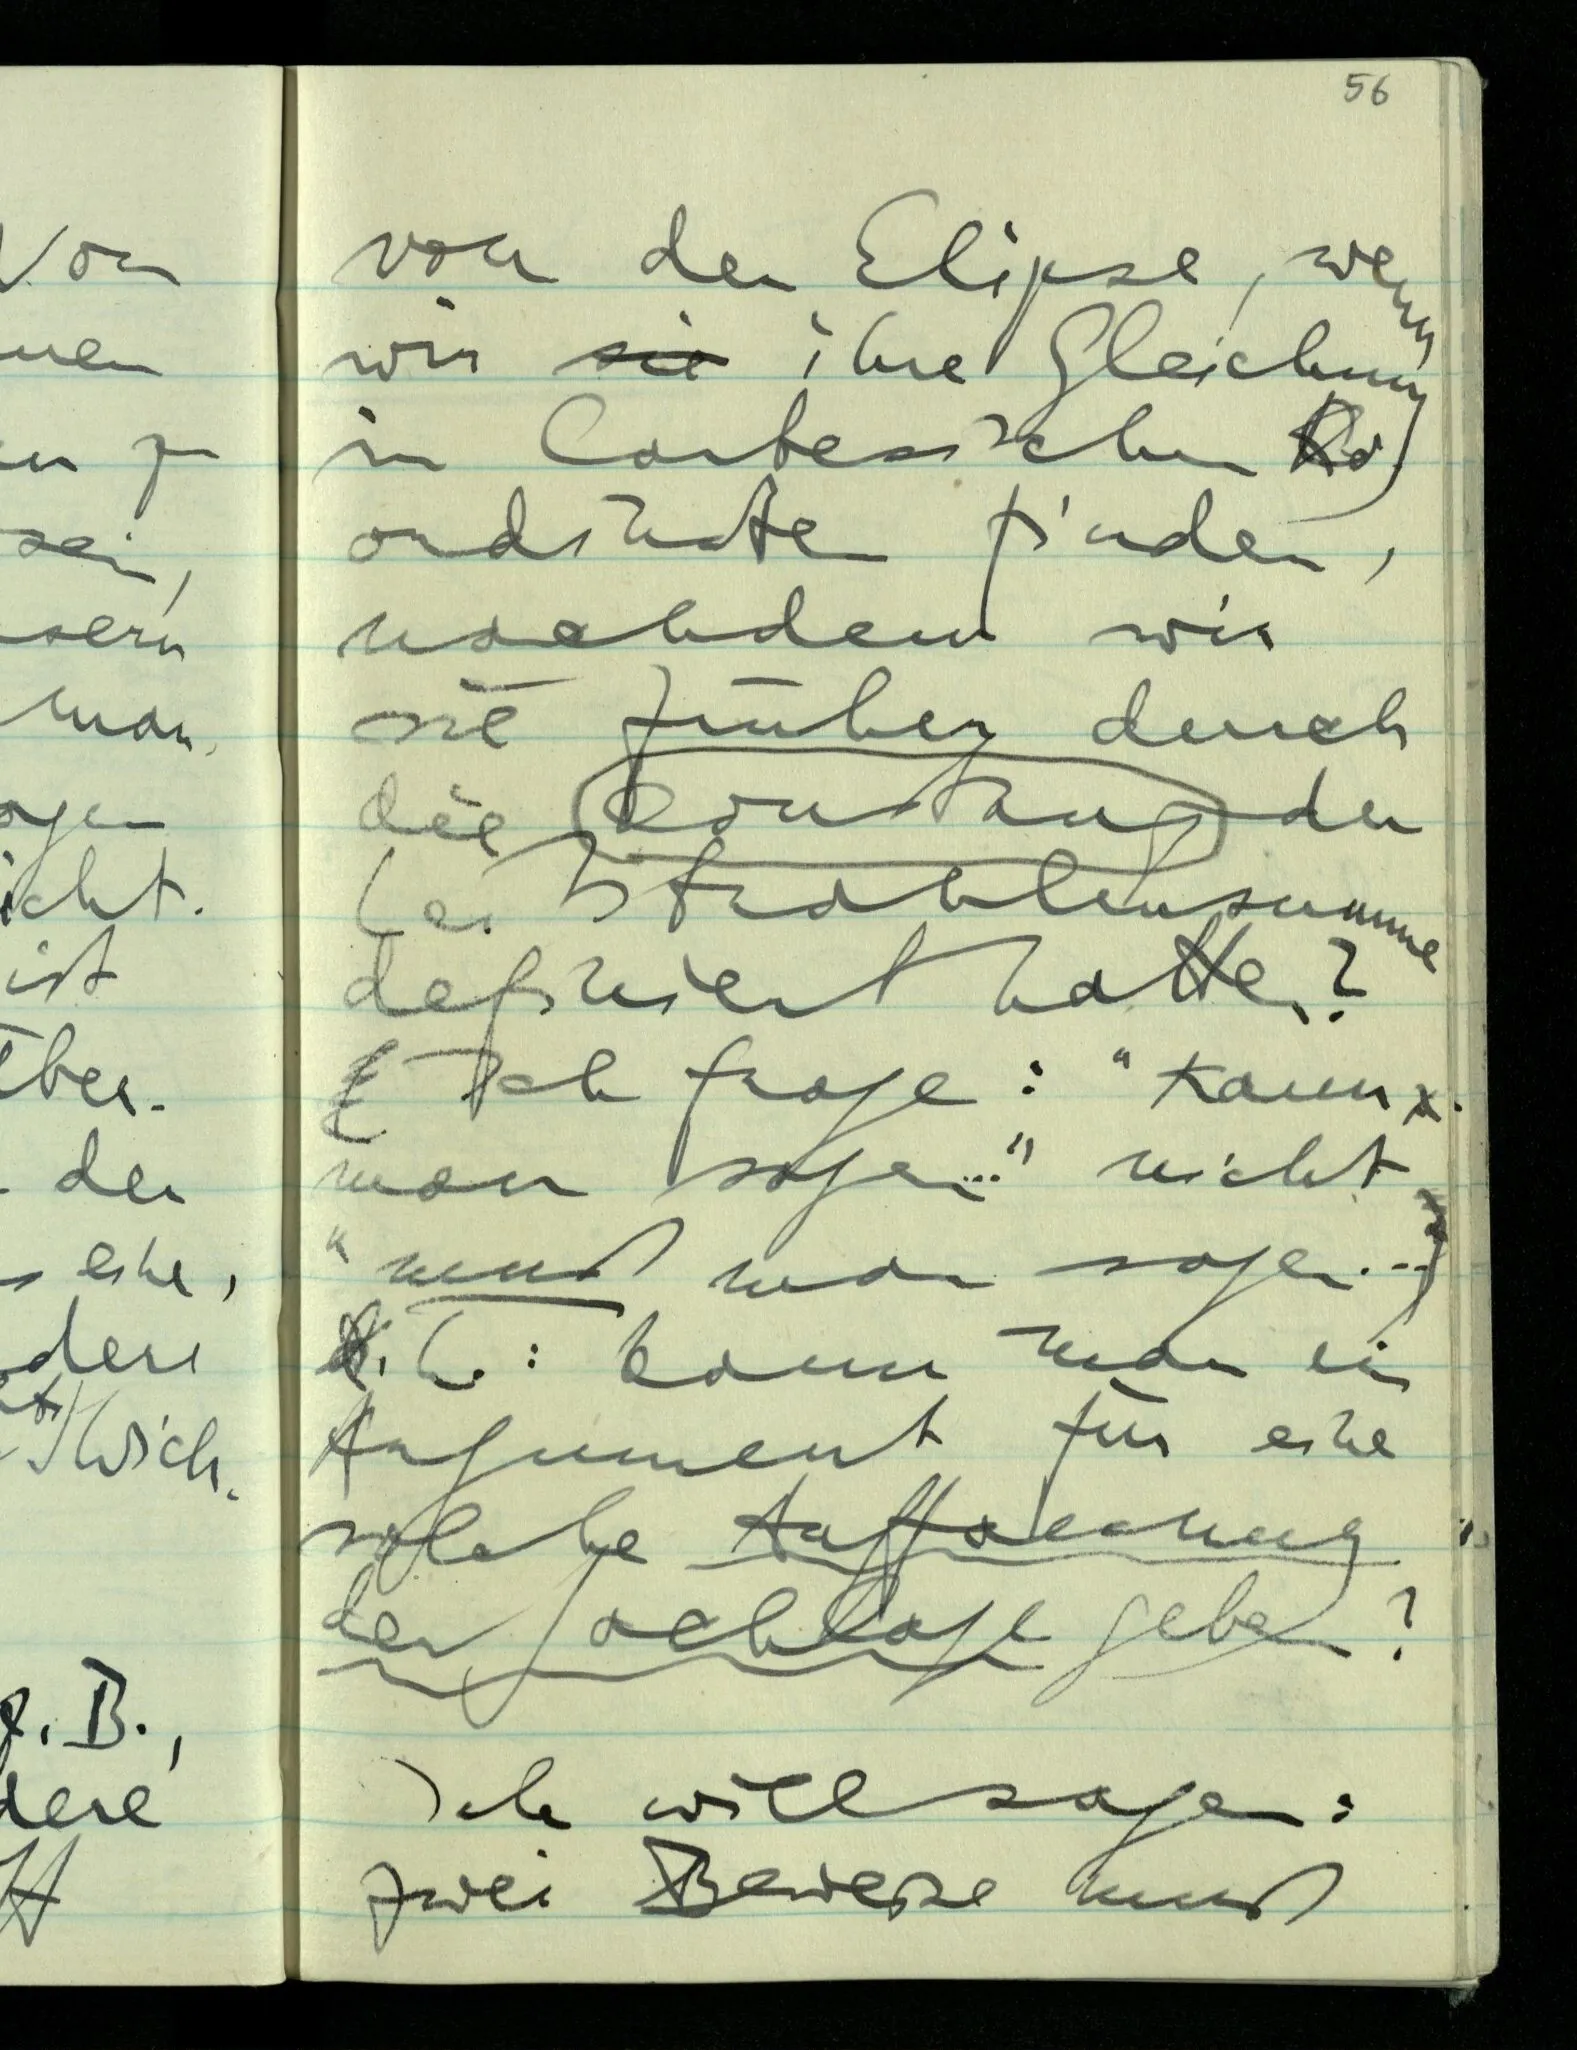 56
von der Elipse, wenn
wir sie ihre Gleichung
in Cartesischen Ko
ordinaten finden,
nachdem wir
sie früher durch
die Konstanz der
Leitstrahlensumme
definiert hatten?
Ich frage: "kann
man sagen..." nicht
"muß man sagen...
d.h.: kann man ein
Argument für eine
solche Auffassung
der Sachlage geben?
Ich will sagen:
zwei Beweise muß
Von
nen
en zu
sein,
nsern
man
agen
icht.
ist
über.
der
s eine,
dere
Wich.
z.B.,
dere